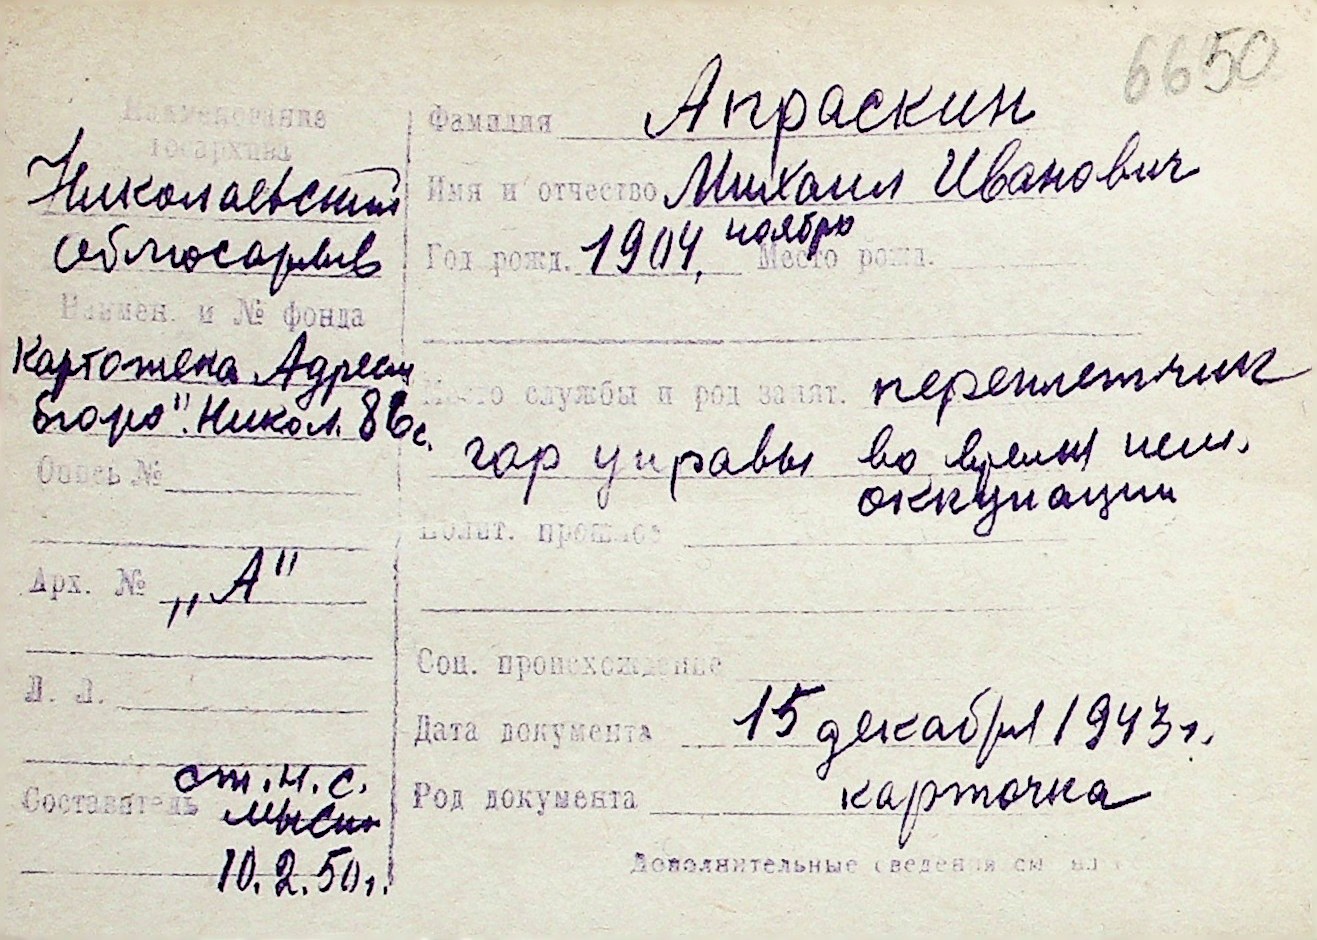 6650
Наименование
Госархива
Николаевский
облгосархив
Наимен. и № фонда
Картотека Адресн
бюро". Никол. 86 с.
Опись №
Арх. № „А"
Л. Л.
Составитель ст. н. с.
Мысин
10.2.50 г.
Фамилия Апраскин
Имя и отчество Михаил Иванович
Год рожд. 1904, ноябрь Место рожд.
Место службы и род занят. переплетчик
гор управы во время нем.
оккупации
Полит. прошлое
Соц. происхождение
Дата документа 15 декабря 1943 г.
Род документа карточка
Дополнительные сведения см. на